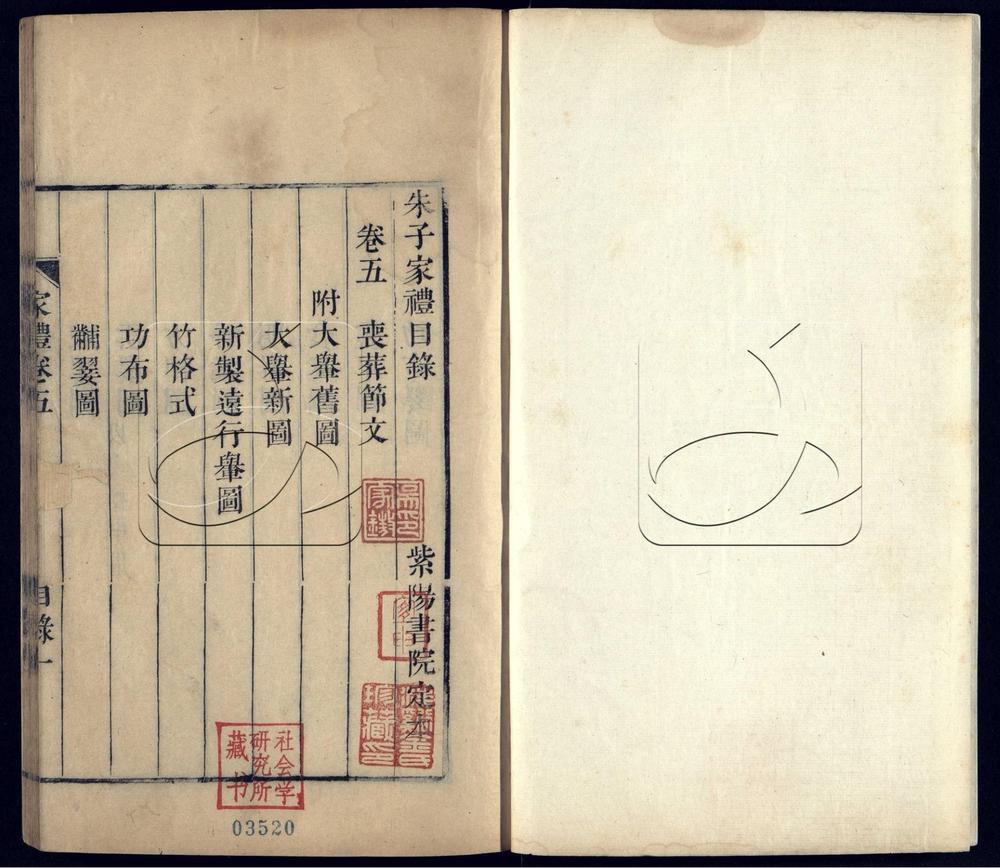 朱子家禮目錄　紫陽書院定本
卷五　喪葬節文
附大轝舊圖
大轝新圖
新製遠行轝圖
竹格式
功布圖
黼翣圖
家禮卷五　目錄一
社会学
研究所
藏书
03520